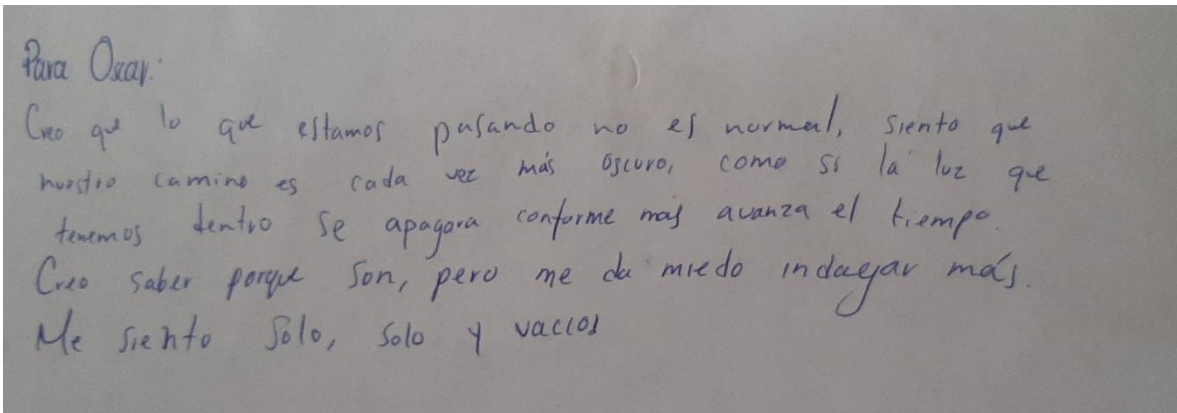 Para Oscar:
Creo que lo que estamos pasando no es normal, siento que
nuestro camino es cada vez más oscuro, como si la luz que
tenemos dentro se apagara conforme mas avanza el tiempo.
Creo saber porque son, pero me da miedo indagar más.
Me siento solo, solo y vacios